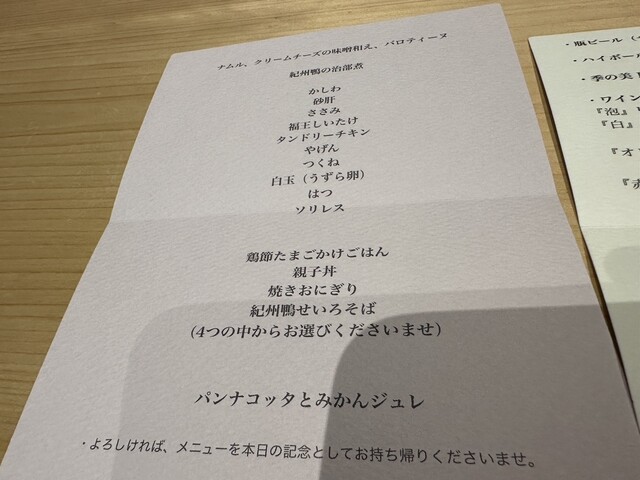 ナムル、クリームチーズの味噌和え、バロティーヌ
紀州鴨の治部煮
かしわ
砂肝
ささみ
福王しいたけ
タンドリーチキン
やげん
つくね
白玉（うずら卵）
はつ
ソリレス
鶏節たまごかけごはん
親子丼
焼きおにぎり
紀州鴨せいろそば
（4つの中からお選びくださいませ）
パンナコッタとみかんジュレ
・よろしければ、メニューを本日の記念としてお持ち帰りくださいませ。
・瓶ビール（
・ハイボール
・季の美
・ワイン
『泡』
『白』
『オ
『赤